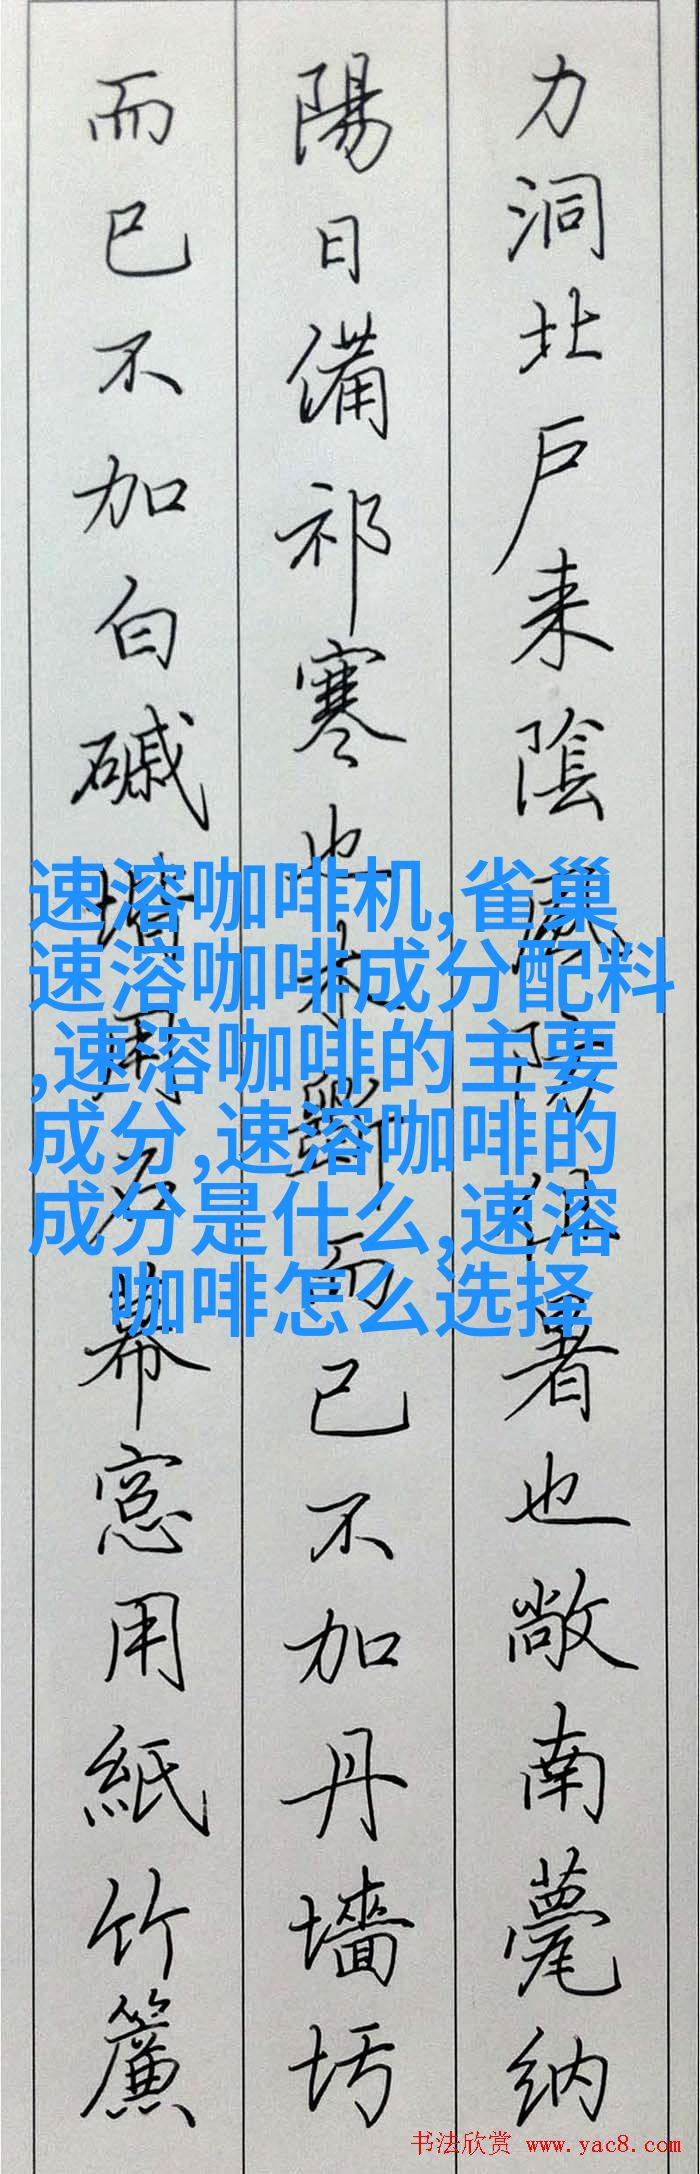 力洞北戶来陰風防徂暑也敞南甍纳
陽日備祁寒也木斲而已不加丹墻圬
而已不加白磩堦用石幕窓用紙竹簾
速溶咖啡机,雀巢
速溶咖啡成分配料
,速溶咖啡的主要
成分,速溶咖啡的
成分是什么,速溶
咖啡怎么选择
书法欣赏 www.yac8.com